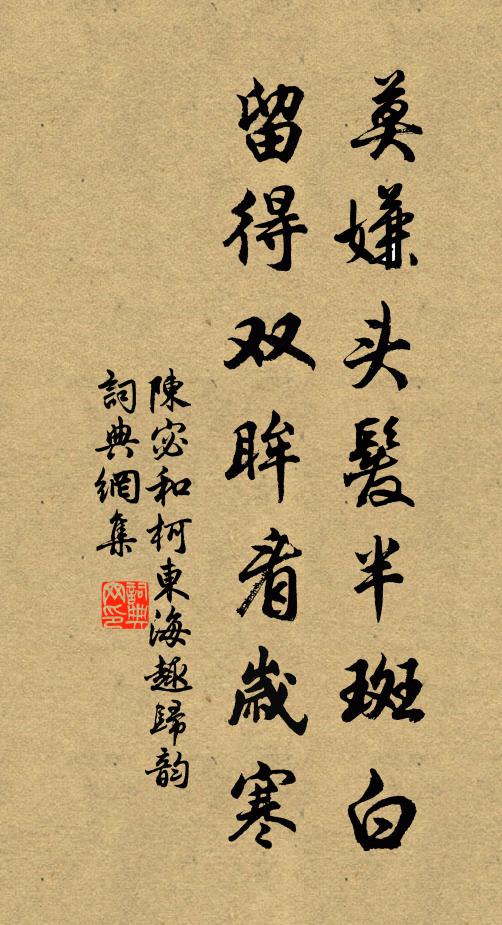 莫嫌头髮半斑白
留得双眸看歲寒
陳宓和柯東海趣歸韵
詞典網集
詞典网印